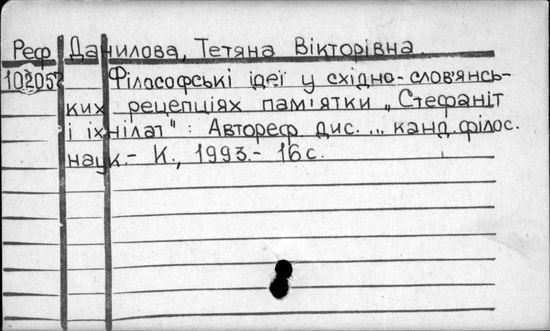 Реф Данилова, Тетяна Вікторівна.
Філософські ідеї у східно-слов'янсь-
ких рецепціях пам'ятки „Стефаніт
і іхнілат" : Автореф. дис. ... канд. філос.
наук.- К., 1993.- 16 с.